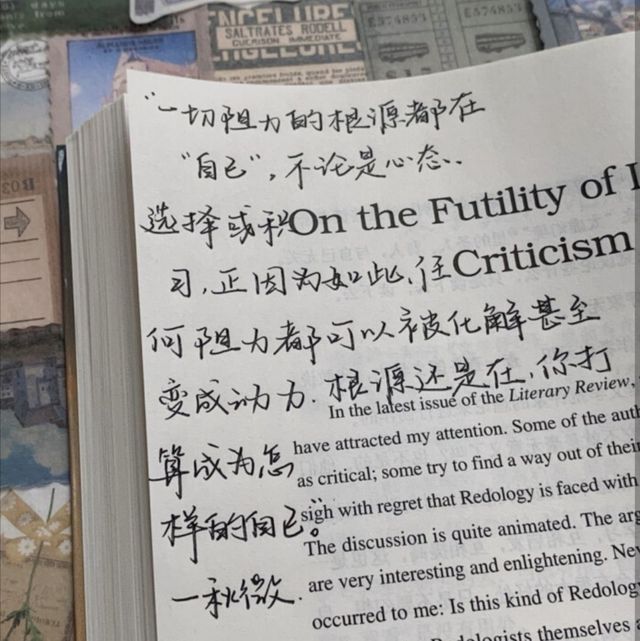 ENCELURE
SALTRATES RODELL
GUERISON IMMEDIATE
E574853
E574853
B03
"一切阻力的根源都在
"自己",不论是心态、
选择或积
On the Futility of
习,正因为如此,任
Criticism
何阻力都可以被化解甚至
变成动力.根源还是在,你打
In the latest issue of the Literary Review,
算成为怎
have attracted my attention. Some of the
as critical; some try to find a way out of their
样的自己。"
sigh with regret that Redology is faced with
The discussion is quite animated. The
一秋微.
are very interesting and enlightening.
occurred to me: Is this kind of
themselves